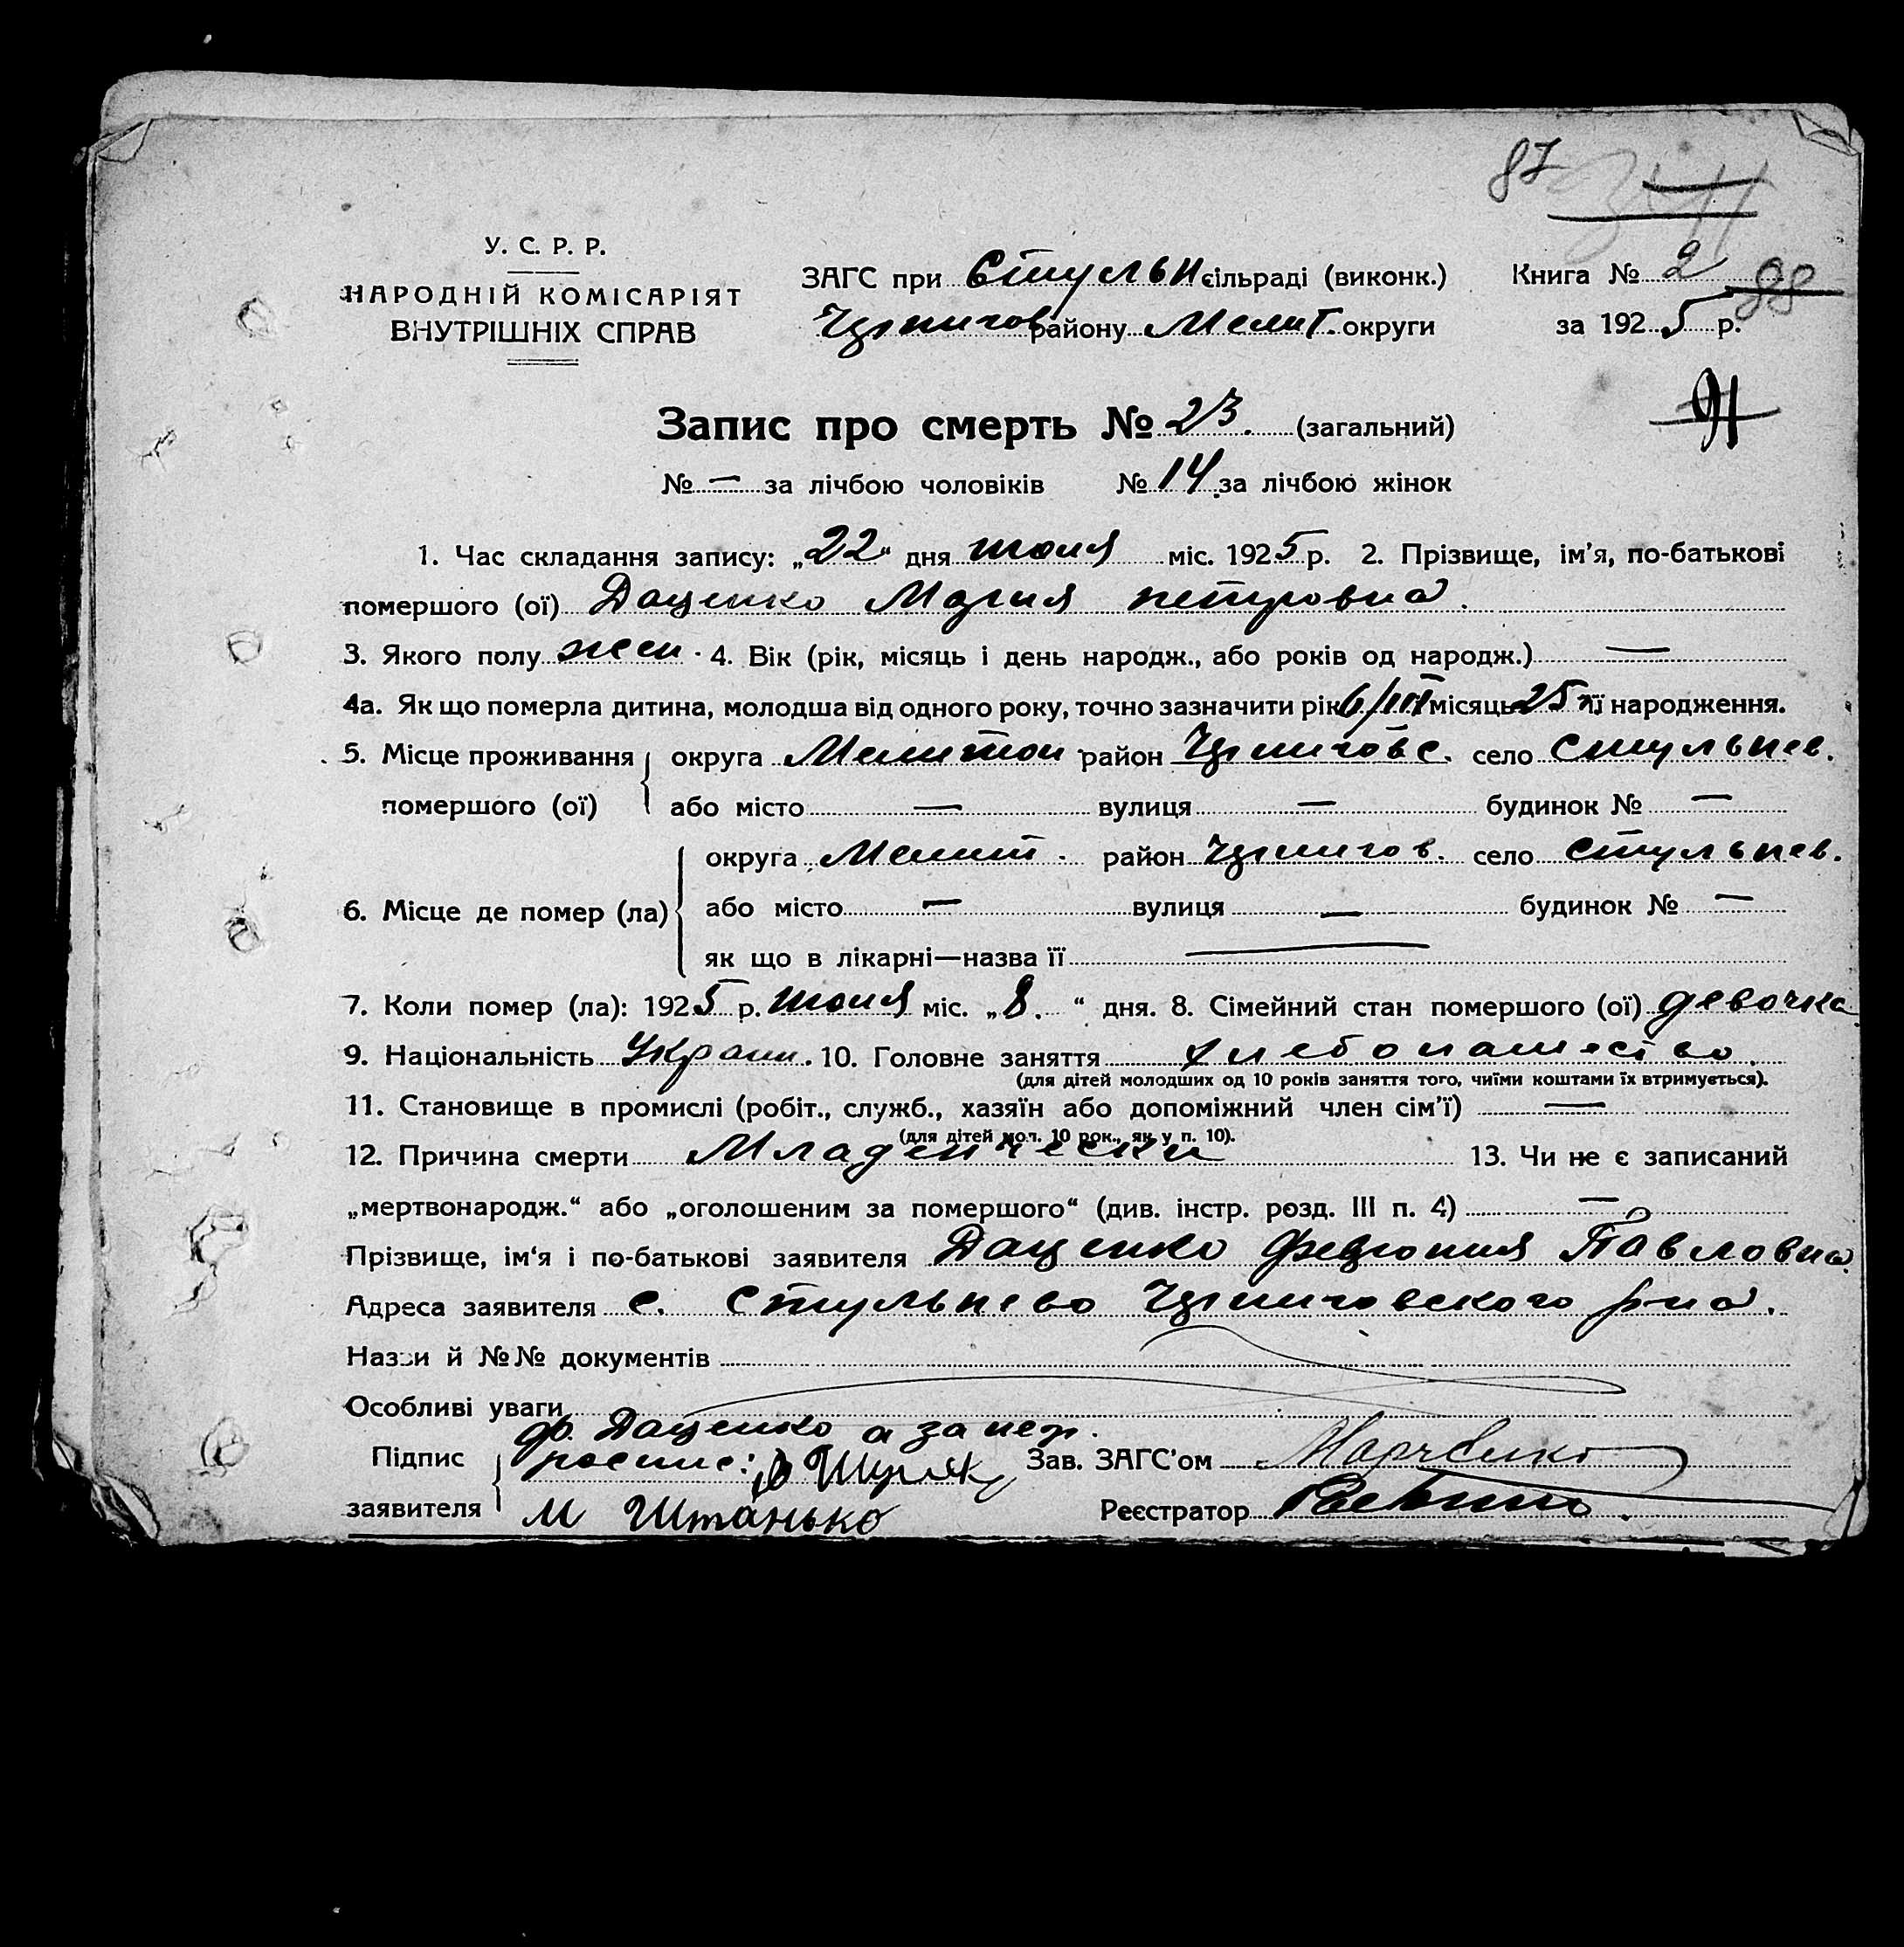 87
У. С. Р. Р.
НАРОДНІЙ КОМІСАРІЯТ
ВНУТРІШНІХ СПРАВ
ЗАГС при Стульн сільраді (виконк.) Книга № 2 88
Чернигов району Мелит. округи за 1925 р.
91
Запис про смерть № 23. (загальний)
№ — за лічбою чоловіків № 14 за лічбою жінок
1. Час складання запису: „22“ дня июля міс. 1925 р. 2. Прізвище, ім’я, по-батькові
помершого (ої) Даценко Мария петровна.
3. Якого полу жен. 4. Вік (рік, місяць і день народж., або років од народж.) —
4а. Як що померла дитина, молодша від одного року, точно зазначити рік 6/III місяць 25 г. її народження.
5. Місце проживання округа Мелитоп район Черниговс. село Стульнев.
помершого (ої) або місто — вулиця — будинок № —
округа Мелит. район Чернигов. село Стульнев.
6. Місце де помер (ла) або місто — вулиця — будинок № —
як що в лікарні—назва її —
7. Коли помер (ла): 1925 р. июля міс. „8.“ дня. 8. Сімейний стан помершого (ої) девочка
9. Національність Украин. 10. Головне заняття хлебопашество.
(для дітей молодших од 10 років заняття того, чиїми коштами їх втримується).
11. Становище в промислі (робіт., служб., хазяїн або допоміжний член сім’ї) —
(для дітей мол. 10 рок., як у п. 10).
12. Причина смерти Младенчески 13. Чи не є записаний
„мертвонародж.“ або „оголошеним за помершого“ (див. інстр. розд. III п. 4) —
Прізвище, ім‘я і по-батькові заявителя Даценко Феврония Павловна.
Адреса заявителя с. Стульнево Черниговского р-на.
Назви й №№ документів
Особливі уваги
ф. Даценко а за нег.
Підпис роспис: Зав. ЗАГС’ом Марченко
заявителя М Штанько Реєстратор